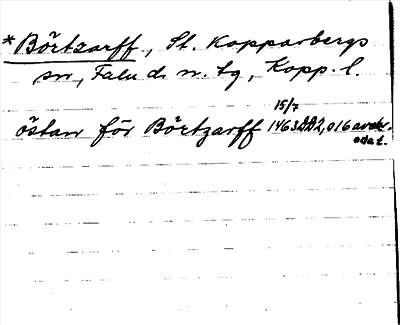 *Börtzarff, St. Kopparbergs
sn, Falu d. n. tg, Kopp. l.
15/7
östan för Börtzarff 1463 DD2, 016 avskr.
odat.